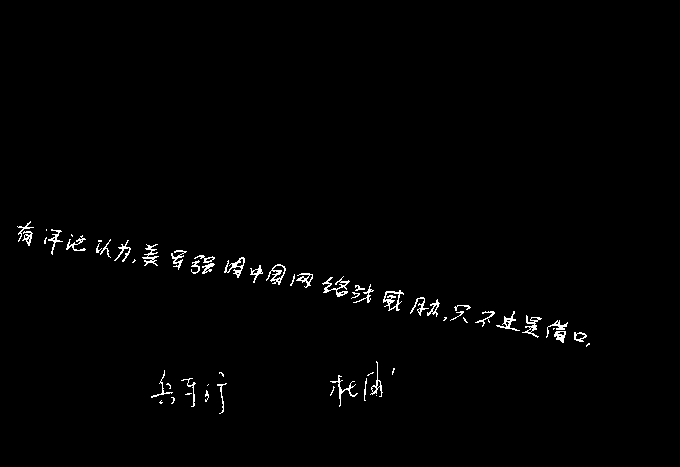 有评论认为,美军强调中国网络战威胁,只不过是借口.
兵车行 杜甫